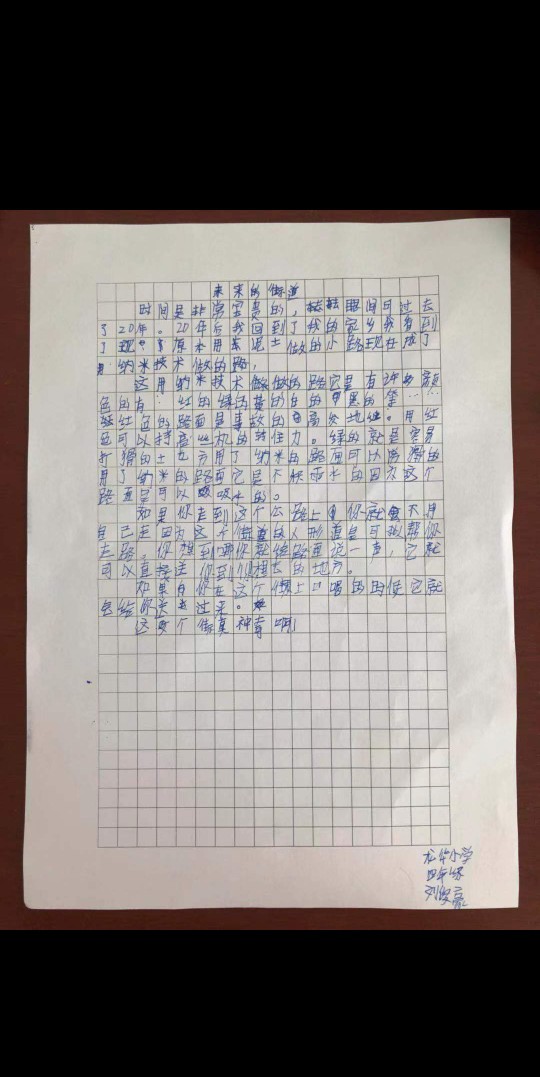 未来的街道
时间是非常宝贵的,转眼间可过去
了20年。20年后我回到了我的家乡我看到
了原本用泥土做的小路现在成了
用纳米技术做的路,
这用纳米技术做的路它是有颜
色的有红的绿的黄的白的黑的等……
红色的路面是事故的高发地。用红
色可以持高的力。绿的就是容易
打滑的土方用了纳米的路面可以防滑的
用了纳米的路面它是不积雨水的因为这个
路面是可以吸水的。
如是你走到这个公路上你就不用
自己走因为这个街道的人形道是可以帮你
走路。你想到哪你就给路面说一声,它就
可以直接送你到你想去的地方。
如果你在这个街上口喝的时候它就
会给你送过来。
这个街真神奇啊!
龙华小学
四年级